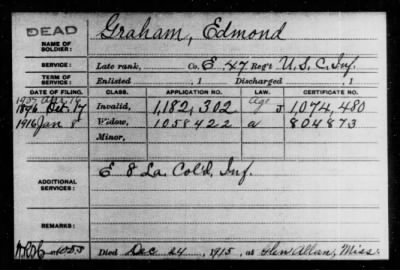 DEAD
NAME OF SOLDIER:
Graham, Edmond
SERVICE:
Late rank, Co. E 47 Reg't U.S.C. Inf.
TERM OF SERVICE:
Enlisted , 1 Discharged , 1
DATE OF FILING. CLASS. APPLICATION NO. LAW. CERTIFICATE NO.
1896 Oct. 17 Invalid, 1,182,302 Age J 1,074,480
1916 Jan 8 Widow, 1058422 a 804873
Minor,
ADDITIONAL SERVICES:
E 8 La. Col'd, Inf.
REMARKS:
Died Dec 24, 1915, at Glen Allan, Miss.